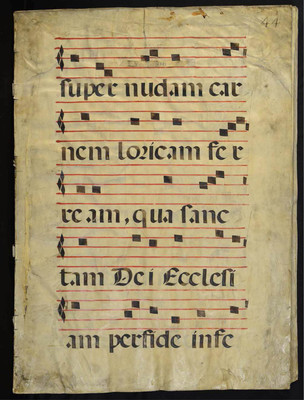 44
super nudam car
nem loricam fer
ream, qua sanc
tam Dei Ecclesi
am perfide infe